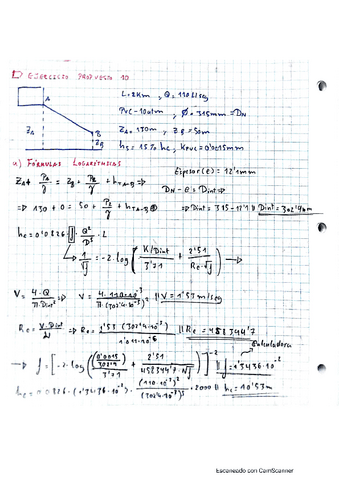 EJERCICIO PROPUESTO 10
A
L=2Km , Q=110 l/seg
PVC-10atm , Ø=315mm=DN
ZA=130m , ZB=50m
hs=15% hc , KPVC=0'0015mm
ZA
B
ZB
a) FÓRMULAS LOGARÍTMICAS
Espesor(e)=12'1mm
ZA+ PA/γ = ZB + PB/γ + hTA-B ⇒
DN-e=Dint⇒
⇒ 130+0=50+ PB/γ + hTA-B
⇒ Dint=315-12'1 || Dint=302'9mm
hc=0'0826·f· Q²/D⁵ ·L
1/√f = -2·log( K/Dint / 3'71 + 2'51 / Re·√f ) →
V= 4·Q / π·Dint² ⇒ V= 4·110·10⁻³ / π·(302'9·10⁻³)² || V=1'53m/seg
Re= V·Dint / ν ⇒ Re= 1'53·(302'9·10⁻³) / 1'01·10⁻⁶ || Re=458344'7
Calculadora
→ f=[-2·log( 0'0015/302'9 / 3'71 + 2'51 / 458344'7·√f )]⁻² || f=1'3436·10⁻²
hc=0'0826·(1'3436·10⁻²)· (110·10⁻³)² / (302'9·10⁻³)⁵ ·2000 || hc=10'53m
Escaneado con CamScanner